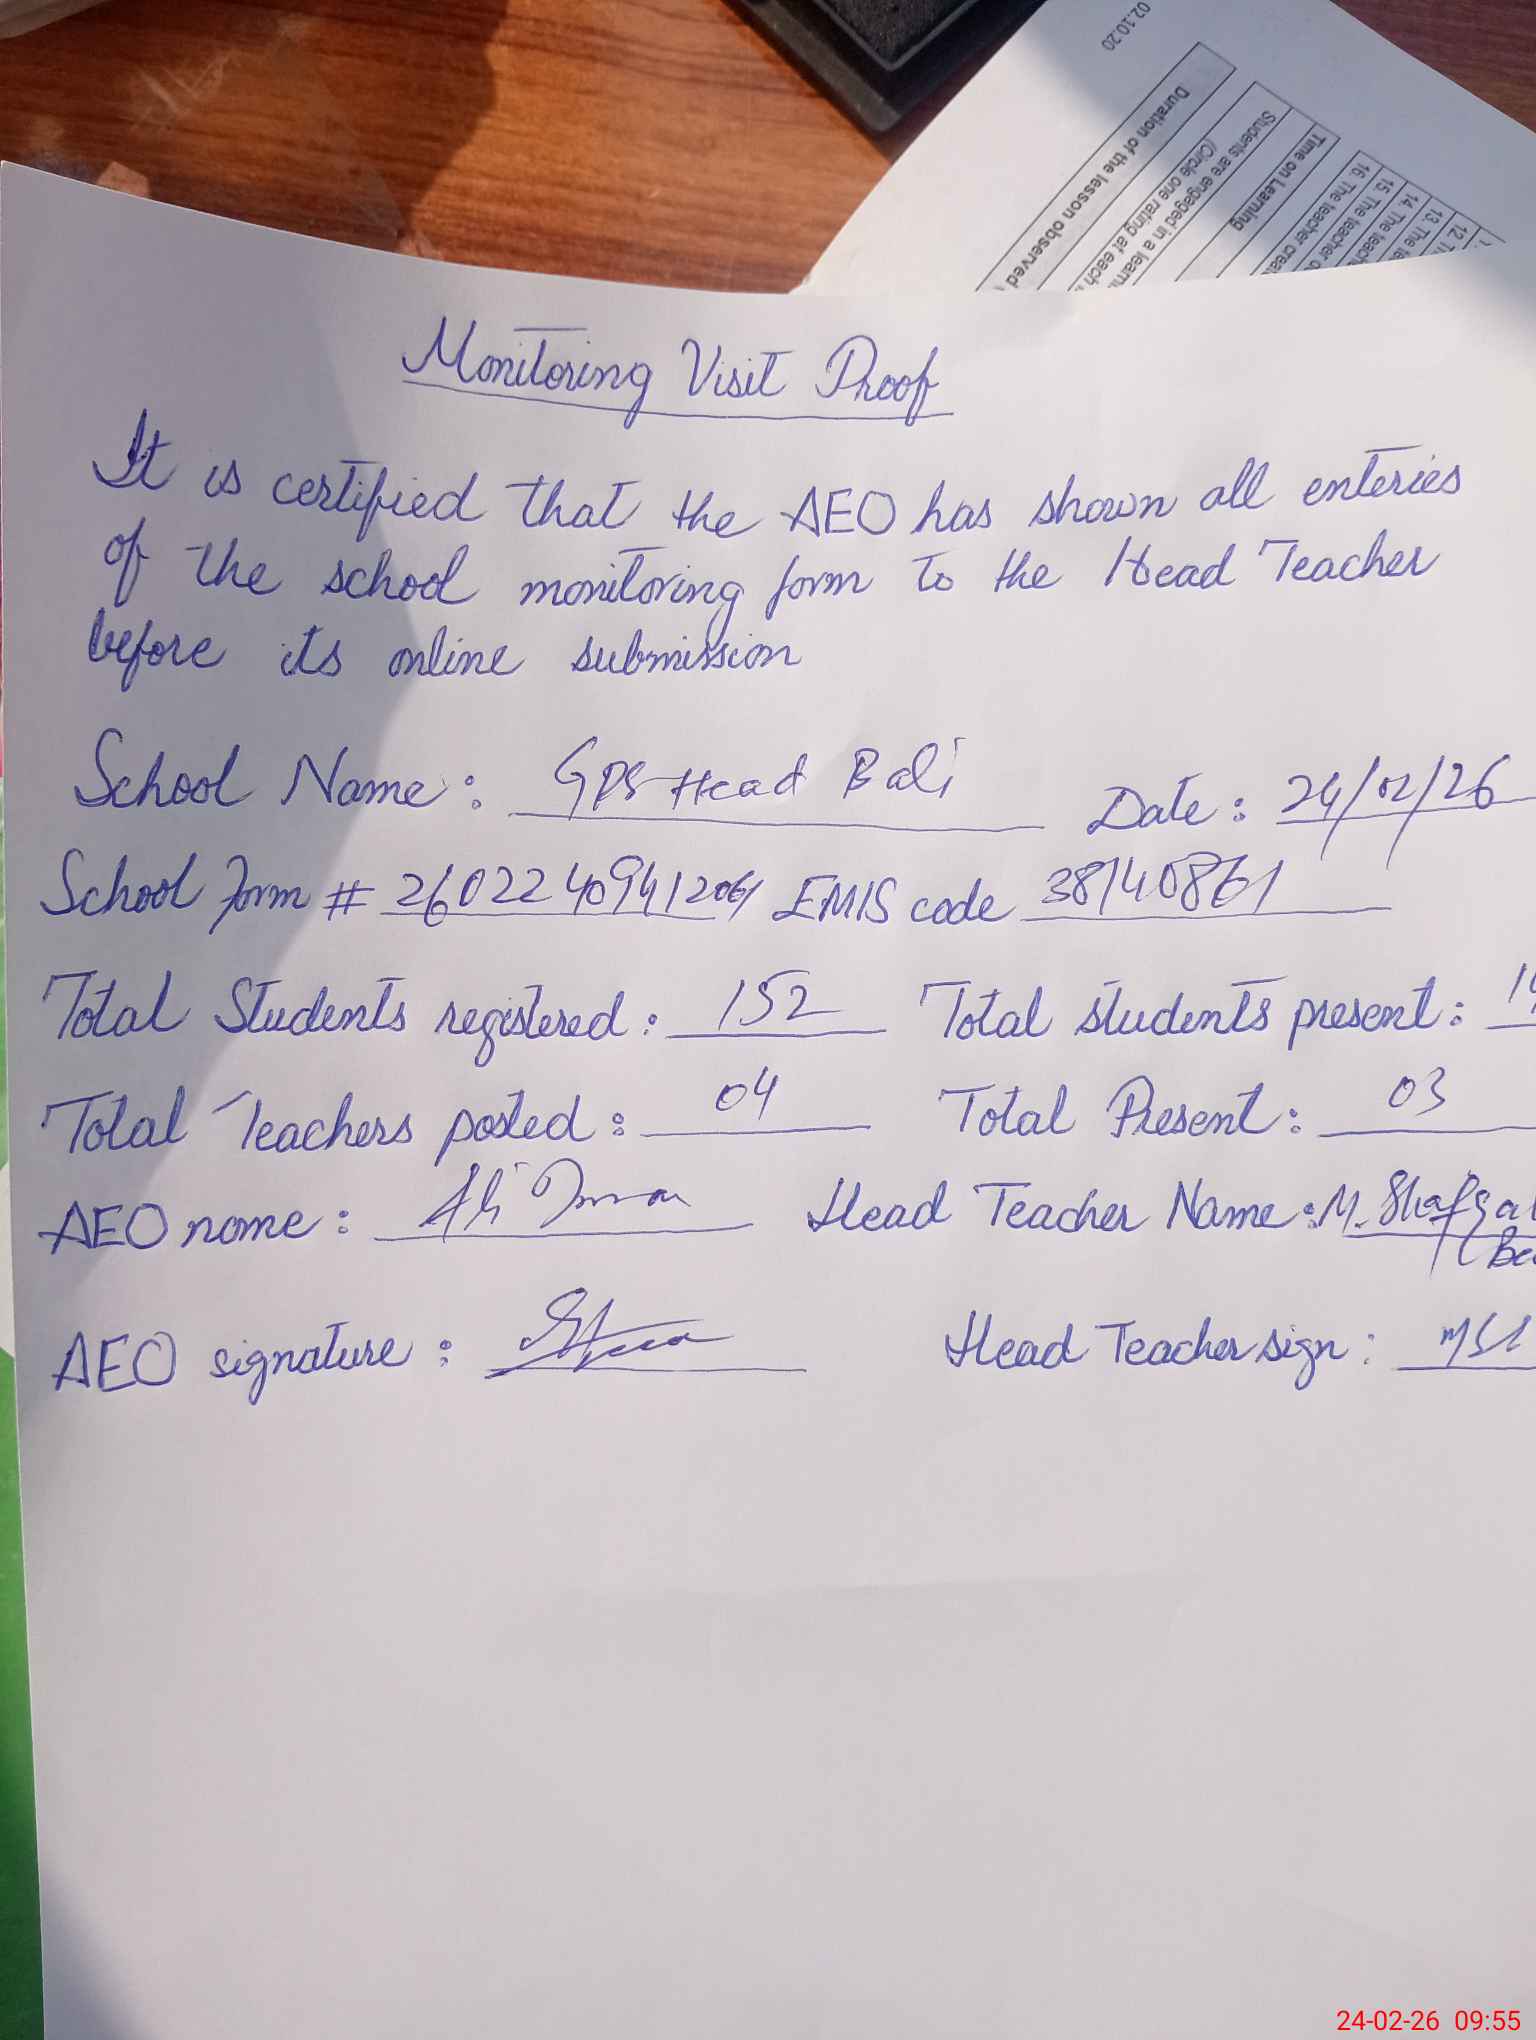 02.10.20
Duration of the lesson observed
Students are engaged in a
(Circle one rating at each
Time on Learning
16. The teacher
15. The teacher
14. The
13. The
12.
Monitoring Visit Proof
It is certified that the AEO has shown all enteries
of the school monitoring form to the Head Teacher
before its online submission
School Name: GPS Head Bali Date: 24/02/26
School Form # EMIS code 38140861
Total Students registered: 152 Total students present:
Total Teachers posted: 04 Total Present: 03
AEO nome: Ali Imran Head Teacher Name: M.
AEO signature: Head Teacher sign:
24-02-26 09:55